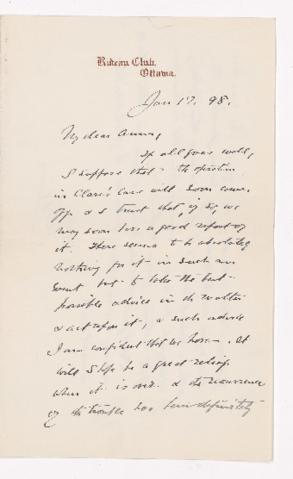 Rideau Club,
Ottawa.
Jan 17. 98.
My dear
If all goes well,
I suppose that the operation
in Clare's case will soon come
off & I trust that, if so, we
may soon have a good report of
it. There seems to be absolutely
nothing for it in such an
event but to take the best
possible advice in the matter
& act upon it, & such advice
I am confident that we have. It
will be a great relief
when it is over & the recurrence
of the trouble has been definitely